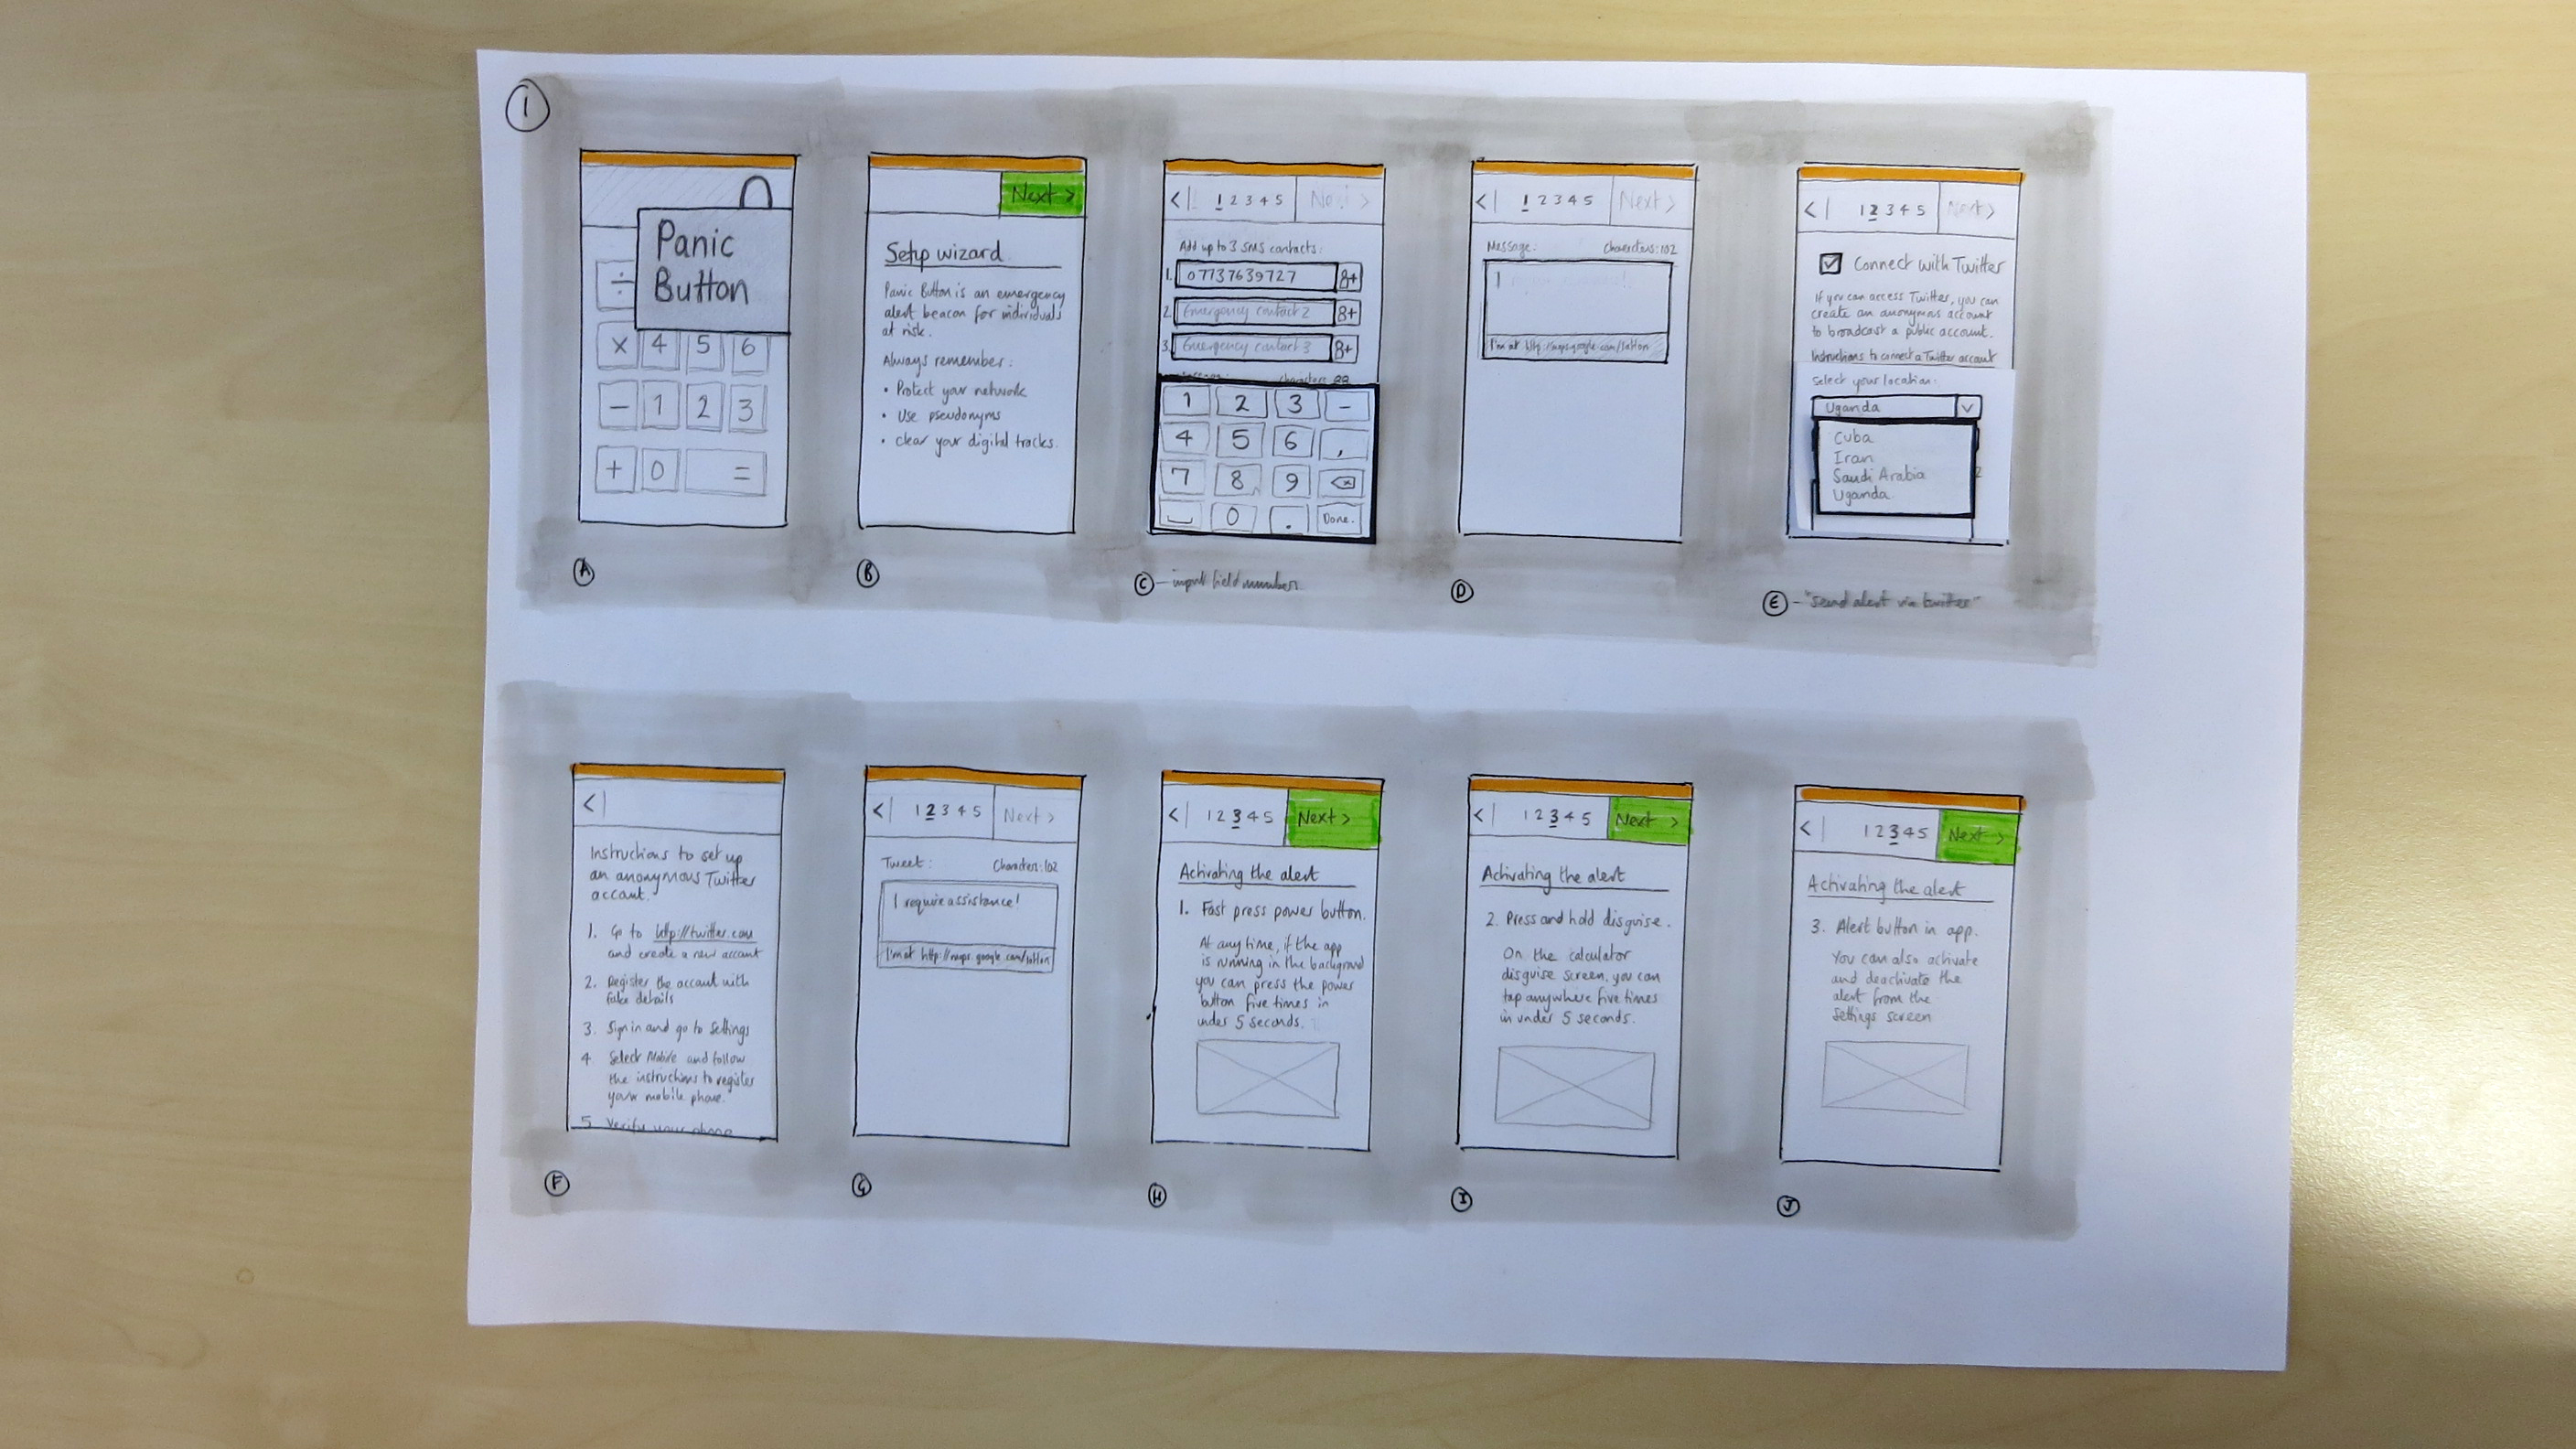 1
Panic
Button
÷
× 4 5 6
− 1 2 3
+ 0 =
A
Next >
Setup wizard
Panic Button is an emergency
alert beacon for individuals
at risk.
Always remember:
• Protect your network
• Use pseudonyms
• clear your digital tracks.
B
< 1 2 3 4 5 Next >
Add up to 3 SMS contacts:
1. 07737639727
2. Emergency contact 2
3. Emergency contact 3
characters
1 2 3 −
4 5 6 ,
7 8 9
0 . Done.
C - input field number
< 1 2 3 4 5 Next >
Message: Characters: 102
I
I'm at http://maps.google.com/
D
< 1 2 3 4 5 Next >
Connect with Twitter
If you can access Twitter, you can
create an anonymous account
to broadcast a public account.
Instructions to connect a Twitter account
Select your location:
Uganda
Cuba
Iran
Saudi Arabia
Uganda
E - "send alert via twitter"
<
Instructions to set up
an anonymous Twitter
account.
1. Go to http://twitter.com
and create a new account
2. Register the account with
fake details
3. Sign in and go to Settings
4 Select Mobile and follow
the instructions to register
your mobile phone.
5 Verify your phone
F
< 1 2 3 4 5 Next >
Tweet: Characters: 102
I require assistance!
I'm at http://maps.google.com/
G
< 1 2 3 4 5 Next >
Activating the alert
1. Fast press power button.
At any time, if the app
is running in the background
you can press the power
button five times in
under 5 seconds.
H
< 1 2 3 4 5 Next >
Activating the alert
2. Press and hold disguise.
On the calculator
disguise screen, you can
tap anywhere five times
in under 5 seconds.
I
< 1 2 3 4 5 Next >
Activating the alert
3. Alert button in app.
You can also activate
and deactivate the
alert from the
Settings screen
J